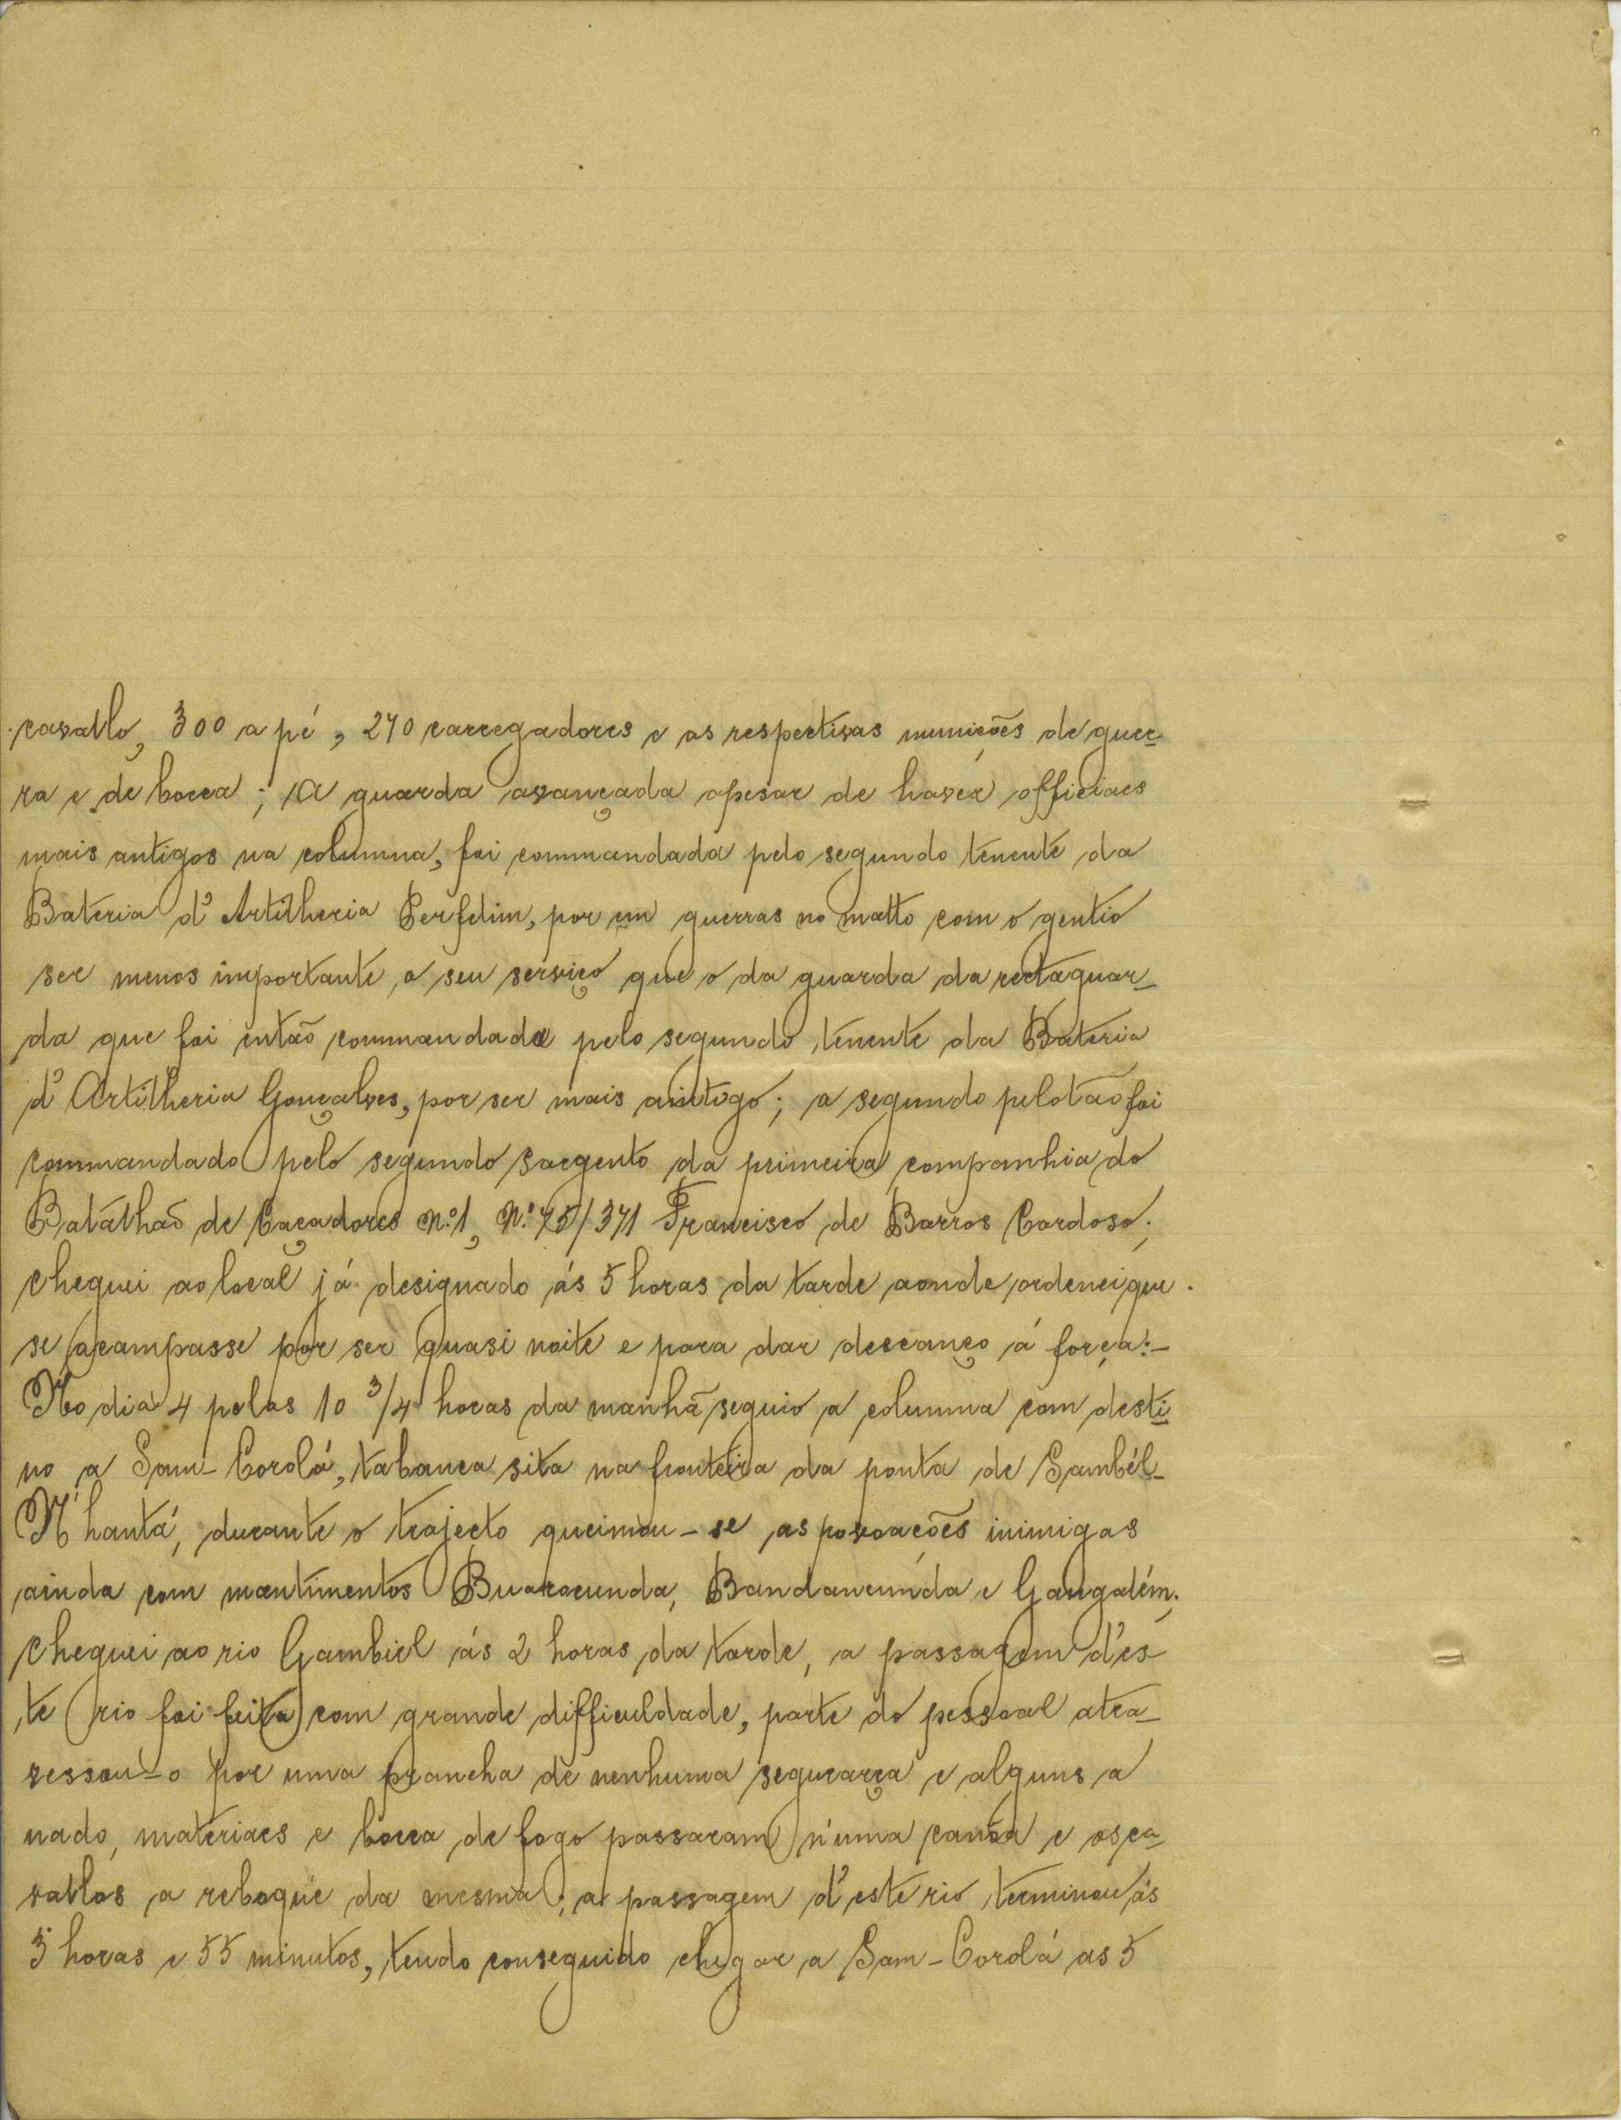 cavallo, 300 a pé, 270 carregadores e as respectivas munições de guer-
ra e de bocca; A guarda avançada apesar de havér officiaes
mais antigos na columna, foi commandada pelo segundo tenente da
Bateria d'Artilheria Perfelim, por em guerras no matto com o gentio
ser menos importante o seu serviço que o da guarda da rectaguar-
da que foi então commandada pelo segundo tenente da Bateria
d'Artilheria Gonçalves, por ser mais antigo; o segundo pelotão foi
commandado pelo segundo sargento da primeira companhia do
Batalhão de Caçadores Nº 1, Nº 75/371 Francisco de Barros Cardoso;
cheguei ao local já designado ás 5 horas da tarde aonde ordenei que
se acampasse por ser quasi noite e para dar descanço á força:-
No dia 4 pelas 10 3/4 horas da manhã seguio a columna com desti-
no a Sam-Corolá, tabanca sita na fronteira da ponta de Sambél-
N'hantá, durante o trajecto queimou-se as povoações inimigas
ainda com mantimentos Buarocunda, Bandancunda e Gangalém;
cheguei ao rio Gambiel ás 2 horas da tarde, a passagem d'es
te rio foi feita com grande difficuldade, parte do pessoal atra-
vessou-o por uma prancha de nenhuma segurança e alguns a
nado, materiaes e bocca de fogo passaram n'uma canôa e os ca-
vallos a reboque da mesma; a passagem d'este rio terminou ás
3 horas e 55 minutos, tendo conseguido chegar a Sam-Corolá as 5